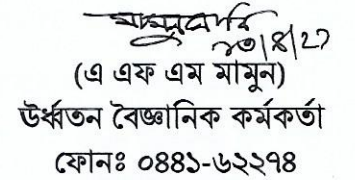 ২৩/৪/২৭
(এ এফ এম মামুন)
উর্ধ্বতন বৈজ্ঞানিক কর্মকর্তা
ফোনঃ ০৪৪১-৬২২৭৪